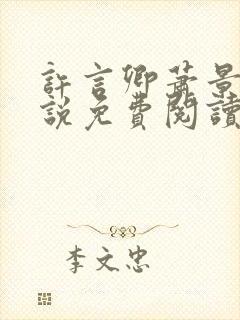 許言卿蕭景
說免費閱讀
李文忠